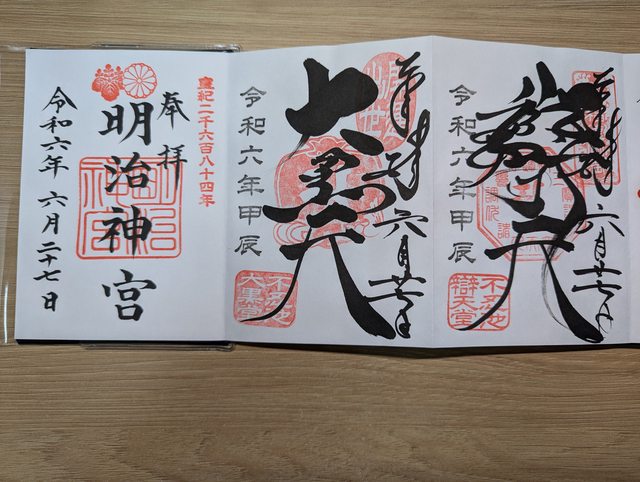 奉拝
皇紀二千六百八十四年
明治神宮
令和六年 六月二十七日
明治神宮
奉拝
六月廿七日
大黒天
令和六年甲辰
不忍池
大黒堂
六月廿七日
令和六年甲辰
不忍池
辯天堂